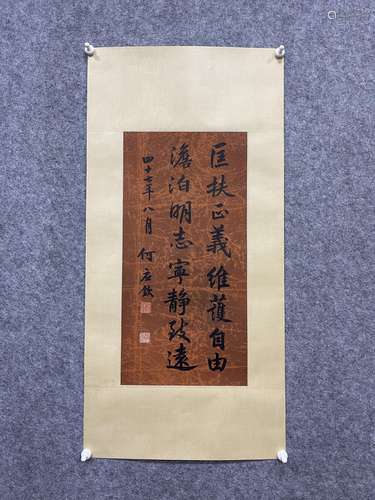 匡扶正義維護自由
澹泊明志寧靜致遠
四十七年八月 何應欽